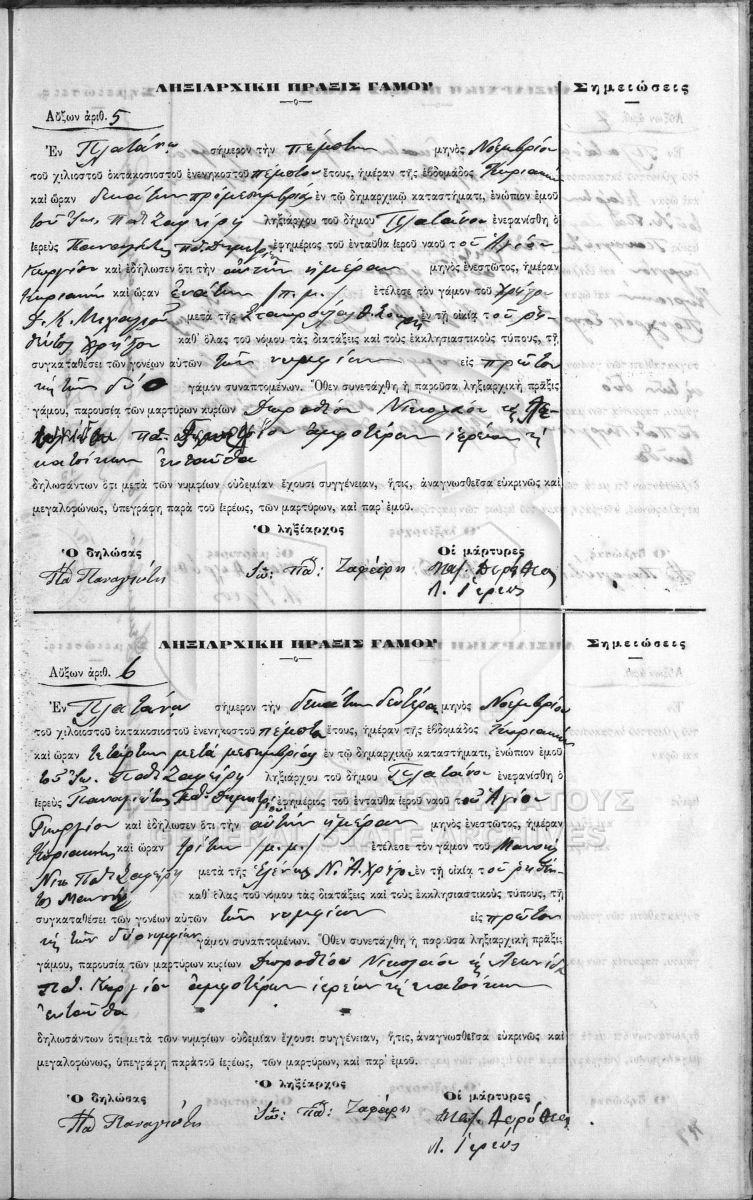 ΛΗΞΙΑΡΧΙΚΗ ΠΡΑΞΙΣ ΓΑΜΟΥ
Σημειώσεις
Αὔξων ἀριθ. 5
Ἐν Πλατάνῳ σήμερον τὴν πέμπτην μηνὸς Νοεμβρίου
τοῦ χιλιοστοῦ ὀκτακοσιοστοῦ ἐνενηκοστοῦ πέμπτου ἔτους, ἡμέραν τῆς ἑβδομάδος Κυριακὴν
καὶ ὥραν δεκάτην πρὸ μεσημβρίας ἐν τῷ δημαρχικῷ καταστήματι, ἐνώπιον ἐμοῦ
τοῦ Ἰω. Παπ Ζαφείρη ληξιάρχου τοῦ δήμου Πλατάνου ἐνεφανίσθη ὁ
ἱερεὺς Παναγιώτης ἐφημέριος τοῦ ἐνταῦθα ἱεροῦ ναοῦ τοῦ Ἁγίου
Γεωργίου καὶ ἐδήλωσεν ὅτι τὴν αὐτὴν ἡμέραν μηνὸς ἐνεστῶτος, ἡμέραν
Κυριακὴν καὶ ὥραν ἐνάτην /π.μ./ ἐτέλεσε τὸν γάμον τοῦ Χρήστου
μετὰ τῆς ἐν τῇ οἰκίᾳ τοῦ
Χρήστου καθ' ὅλας τοῦ νόμου τὰς διατάξεις καὶ τοὺς ἐκκλησιαστικοὺς τύπους, τῇ
συγκαταθέσει τῶν γονέων αὐτῶν τῶν νυμφίων εἰς πρῶτον
τῶν δύο γάμον συναπτομένων. Ὅθεν συνετάχθη ἡ παροῦσα ληξιαρχικὴ πρᾶξις
γάμου, παρουσίᾳ τῶν μαρτύρων κυρίων Δωροθέου Νικολάου
ἀμφοτέρων ἱερέων
κατοίκων ἐνταῦθα
δηλωσάντων ὅτι μετὰ τῶν νυμφίων οὐδεμίαν ἔχουσι συγγένειαν, ἥτις, ἀναγνωσθεῖσα εὐκρινῶς καὶ
μεγαλοφώνως, ὑπεγράφη παρὰ τοῦ ἱερέως, τῶν μαρτύρων, καὶ παρ' ἐμοῦ.
Ὁ ληξίαρχος
Ὁ δηλώσας Οἱ μάρτυρες
Πα Παναγιώτη Ἰω: Παπ: Ζαφείρη Δωρόθεος
Λ. Ἱερεύς
ΛΗΞΙΑΡΧΙΚΗ ΠΡΑΞΙΣ ΓΑΜΟΥ
Σημειώσεις
Αὔξων ἀριθ. 6
Ἐν Πλατάνῳ σήμερον τὴν δεκάτην δευτέραν μηνὸς Νοεμβρίου
τοῦ χιλιοστοῦ ὀκτακοσιοστοῦ ἐνενηκοστοῦ πέμπτου ἔτους, ἡμέραν τῆς ἑβδομάδος Κυριακὴν
καὶ ὥραν τετάρτην μετὰ μεσημβρίαν ἐν τῷ δημαρχικῷ καταστήματι, ἐνώπιον ἐμοῦ
τοῦ Ἰω. Παπ Ζαφείρη ληξιάρχου τοῦ δήμου Πλατάνου ἐνεφανίσθη ὁ
ἱερεὺς Παναγιώτης ἐφημέριος τοῦ ἐνταῦθα ἱεροῦ ναοῦ τοῦ Ἁγίου
Γεωργίου καὶ ἐδήλωσεν ὅτι τὴν αὐτὴν ἡμέραν μηνὸς ἐνεστῶτος, ἡμέραν
Κυριακὴν καὶ ὥραν τρίτην /μ.μ./ ἐτέλεσε τὸν γάμον τοῦ
Νικ Παπ Ζαφείρη μετὰ τῆς Ἑλένης Ν. ἐν τῇ οἰκίᾳ τοῦ
καθ' ὅλας τοῦ νόμου τὰς διατάξεις καὶ τοὺς ἐκκλησιαστικοὺς τύπους, τῇ
συγκαταθέσει τῶν γονέων αὐτῶν τῶν νυμφίων εἰς πρῶτον
τῶν δύο νυμφίων γάμον συναπτομένων. Ὅθεν συνετάχθη ἡ παροῦσα ληξιαρχικὴ πρᾶξις
γάμου, παρουσίᾳ τῶν μαρτύρων κυρίων Δωροθέου Νικολάου
Παπ. Γεωργίου ἀμφοτέρων ἱερέων κατοίκων
ἐνταῦθα
δηλωσάντων ὅτι μετὰ τῶν νυμφίων οὐδεμίαν ἔχουσι συγγένειαν, ἥτις, ἀναγνωσθεῖσα εὐκρινῶς καὶ
μεγαλοφώνως, ὑπεγράφη παρὰ τοῦ ἱερέως, τῶν μαρτύρων, καὶ παρ' ἐμοῦ.
Ὁ ληξίαρχος
Ὁ δηλώσας Οἱ μάρτυρες
Πα Παναγιώτη Ἰω: Παπ: Ζαφείρη Δωρόθεος
Λ. Ἱερεύς
GENERAL STATE ARCHIVES